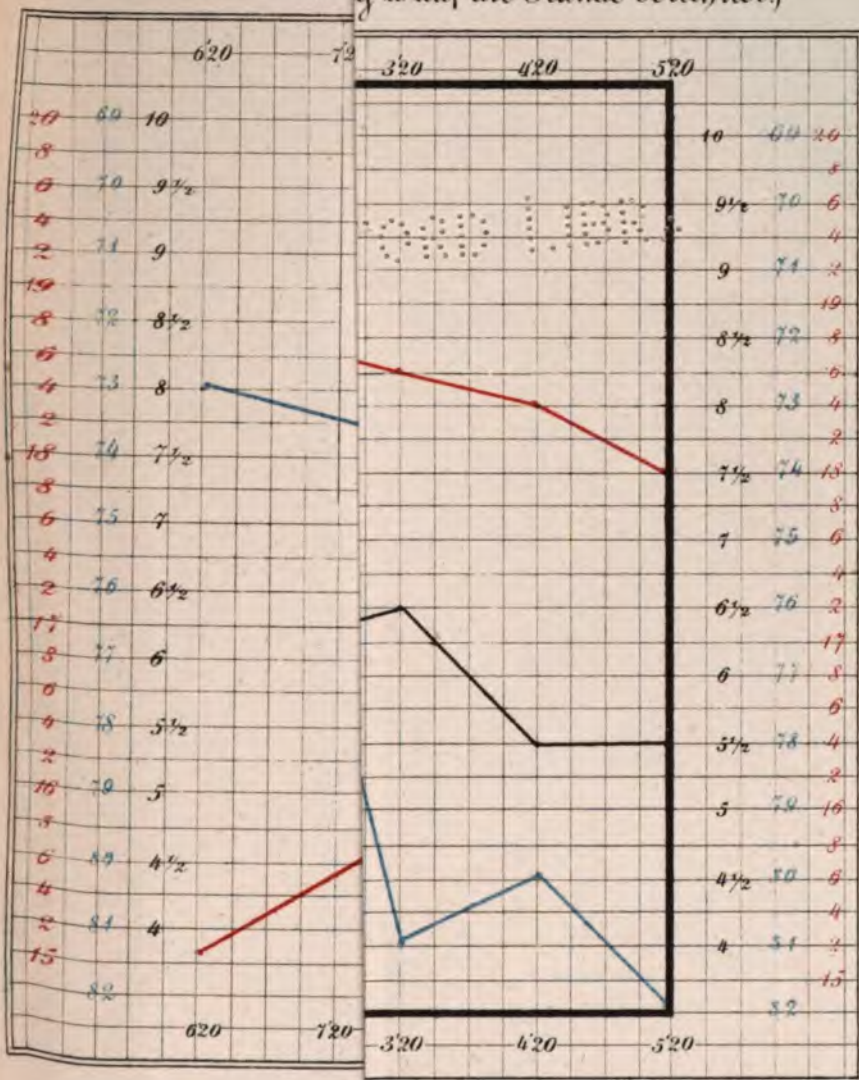 auf die Stunde berechnet.)
6'20 7'2
20 69 10
8
6 70 9 1/2
4
2 71 9
19
8 72 8 1/2
6
4 73 8
2
18 74 7 1/2
8
6 75 7
4
2 76 6 1/2
17
8 77 6
6
4 78 5 1/2
2
16 79 5
8
6 80 4 1/2
4
2 81 4
15
82
6'20 7'20
3'20 4'20 5'20
10 69 20
8
9 1/2 70 6
4
9 71 2
19
8 1/2 72 8
6
8 73 4
2
7 1/2 74 18
8
7 75 6
4
6 1/2 76 2
17
6 77 8
6
5 1/2 78 4
2
5 79 16
8
4 1/2 80 6
4
4 81 2
15
82
3'20 4'20 5'20